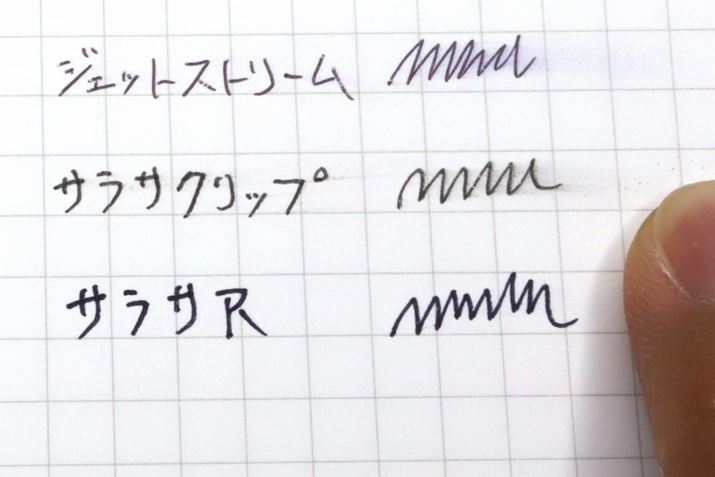 ジェットストリーム
サラサクリップ
サラサR